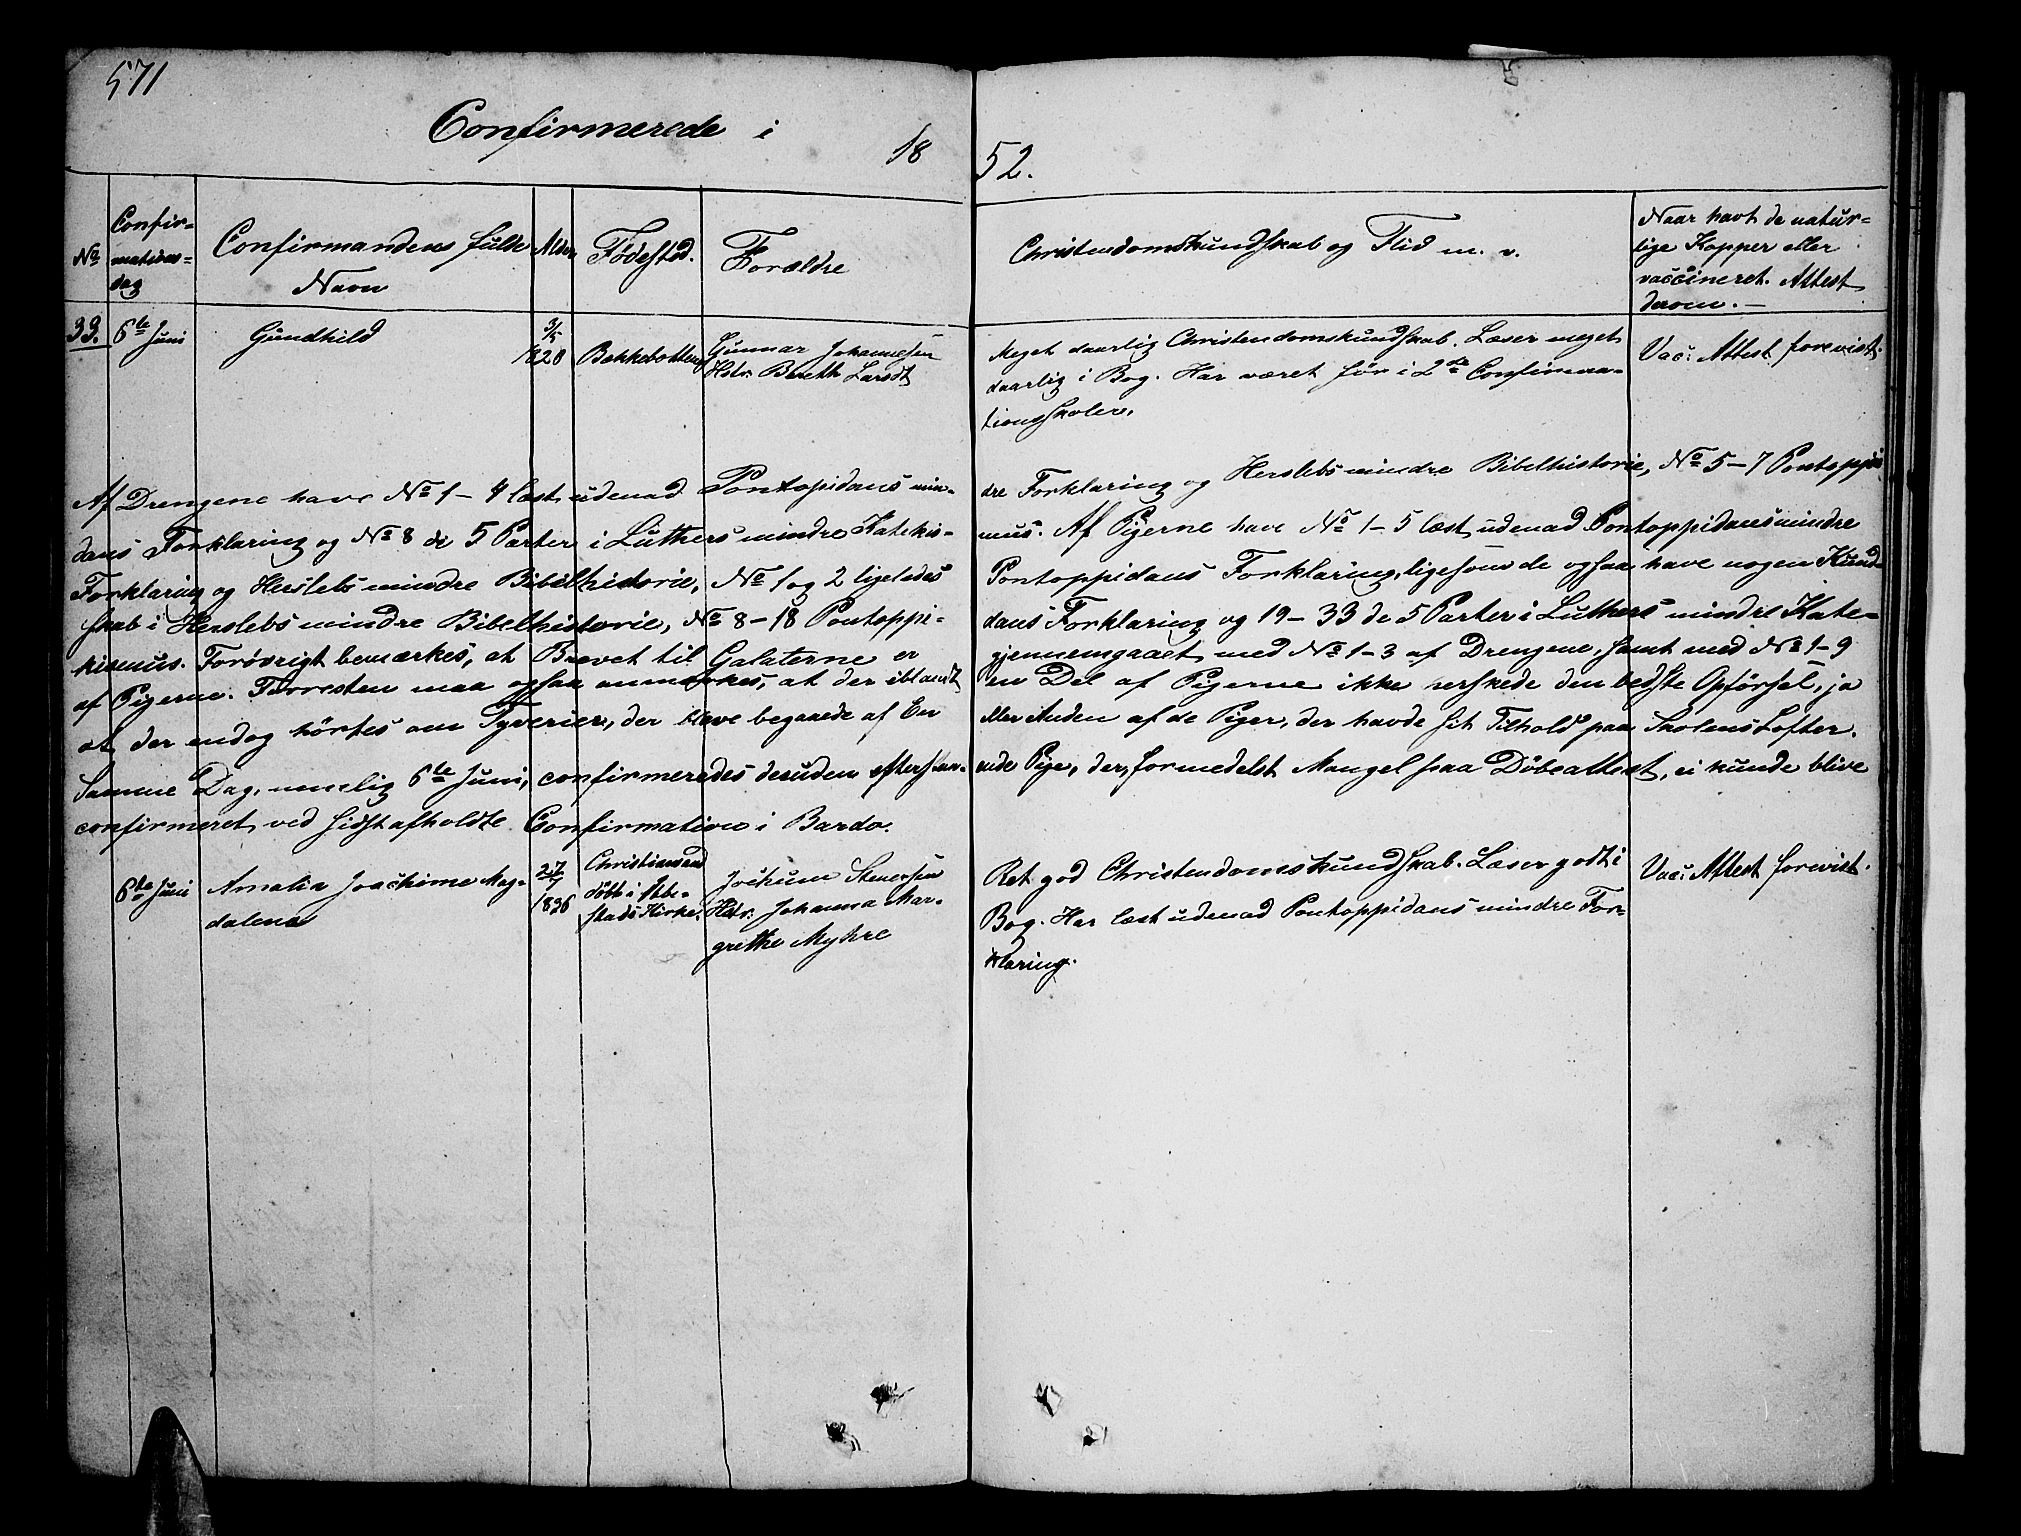 571
Confirmerede i 18 52.
No
Confir-
mations-
dag
Confirmandens fulde
Navn
Alder
Fødested.
Forældre
Christendomskundskab og Flid m. v.
Naar havt de natur-
lige Kopper eller
vaccineret. Attest
derom. —
33. 6te Juni Gundhild Bækkebotten Gunnar Johannesen
Hstr. Bereth Larsdt
Meget daarlig Christendomskundskab. Læser meget
daarlig i Bog. Har været før i 2de Confirma-
tionsskoler.
Vac: Attest forevist.
Af Drengene have No 1 – 4 læst udenad Pontopidans min- dre Forklaring og Herslebs mindre Bibelhistorie, No 5 – 7 Pontoppi-
dans Forklaring og No 8 de 5 Parter i Luthers mindre Katekis- mus. Af Pigerne have No 1 – 5 læst udenad Pontoppidans mindre
Forklaring og Herslebs mindre Bibelhistorie, No 1 og 2 ligeledes Pontoppidans Forklaring, ligesom de ogsaa have nogen Kund-
skab i Herslebs mindre Bibelhistorie, No 8 – 18 Pontoppi- dans Forklaring og 19 – 33 de 5 Parter i Luthers mindre Kate-
kismus. Forøvrigt bemærkes, at Brevet til Galaterne er gjennemgaaet med No 1 – 3 af Drengene, samt med No 1 – 9
af Pigerne. Forresten maa ogsaa anmærkes, at der iblandt en Del af Pigerne ikke herskede den bedste Opførsel, ja
at der endog hørtes om Tyverier, der bleve begaaede af En eller Anden af de Piger, der havde sit Tilhold paa Skolens Lofter.
Samme Dag, nemelig 6te Juni, confirmeredes desuden efterstaa- ende Pige, der, formedelst Mangel paa Døbeattest, ei kunde blive
confirmeret ved sidst afholdte Confirmation i Bardo.
6te Juni Amalia Joachime Mag-
dalena
27/7
Christiansand
døbt i
stads Kirke.
Jochum Stenersen
Hstr. Johanna Mar-
grethe Myhre
Ret god Christendomskundskab. Læser godt i
Bog. Har læst udenad Pontoppidans mindre For-
klaring.
Vac: Attest forevist.